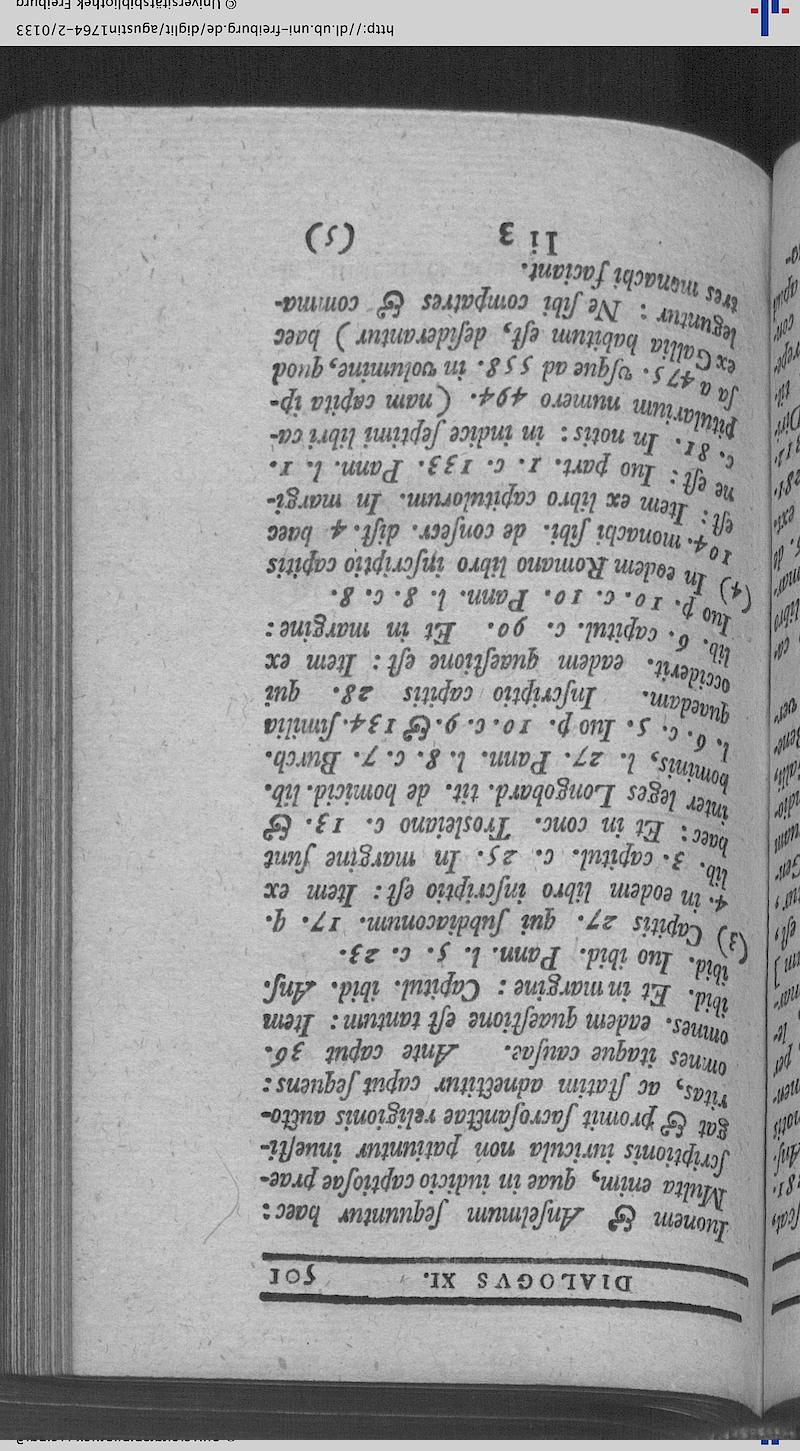 DIALOGVS XI. 501
Iuonem & Anſelmum ſequuntur haec:
Multa enim, quae in iudicio captioſae prae-
ſcriptionis iuricula non patiuntur inueſti-
gat & promit ſacroſanctae religionis aucto-
ritas, ac ſtatim adnectitur caput ſequens:
omnes itaque cauſas. Ante caput 36.
omnes. eadem quaeſtione eſt tantum: Item
ibid. Et in margine: Capitul. ibid. Anſ.
ibid. Iuo ibid. Pann. l. 5. c. 23.
(3) Capitis 27. qui ſubdiaconum. 17. q.
4. in eodem libro inſcriptio eſt: Item ex
lib. 3. capitul. c. 25. In margine ſunt
haec: Et in conc. Trosleiano c. 13. &
inter leges Longobard. tit. de homicid. lib.
hominis, l. 27. Pann. l. 8. c. 7. Burch.
l. 6. c. 5. Iuo p. 10. c. 9. & 134. ſimilia
quaedam. Inſcriptio capitis 28. qui
occiderit. eadem quaeſtione eſt: Item ex
lib. 6. capitul. c. 90. Et in margine:
Iuo p. 10. c. 10. Pann. l. 8. c. 8.
(4) In eodem Romano libro inſcriptio capitis
104. monachi ſibi. de conſecr. diſt. 4 haec
eſt: Item ex libro capitulorum. In margi-
ne eſt: Iuo part. 1. c. 133. Pann. l. 1.
c. 81. In notis: in indice ſeptimi libri ca-
pitularium numero 494. (nam capita ip-
ſa a 475. vſque ad 558. in volumine, quod
ex Gallia habitum eſt, deſiderantur) haec
leguntur: Ne ſibi compatres & comma-
tres monachi faciant.
Ii 3 (5)
http://dl.ub.uni-freiburg.de/diglit/augustin1764-2/0133
© Universitätsbibliothek Freiburg